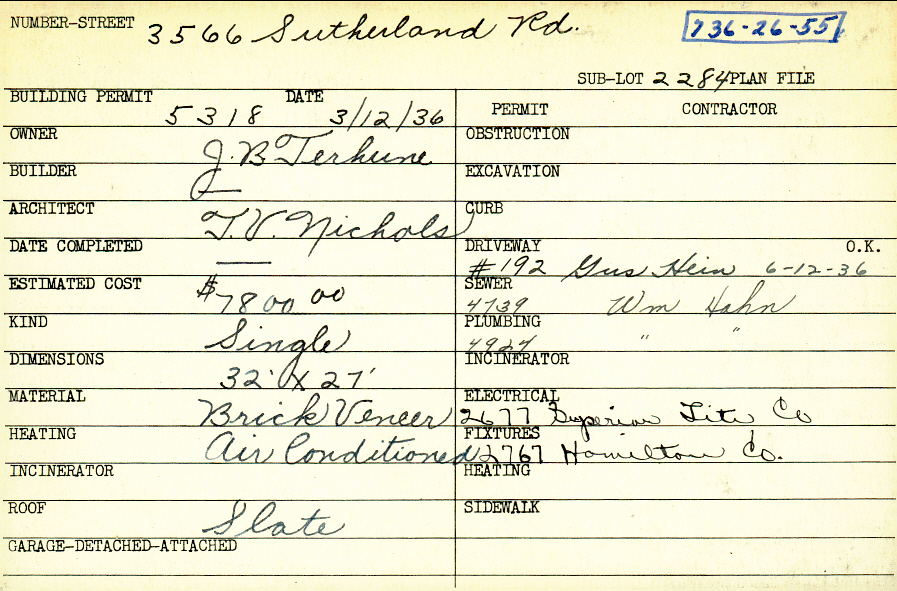 NUMBER-STREET 3566 Sutherland Rd. 736-26-55
SUB-LOT 2284 PLAN FILE
BUILDING PERMIT 5318 DATE 3/12/36
PERMIT CONTRACTOR
OWNER J.B Terhune
OBSTRUCTION
BUILDER
EXCAVATION
ARCHITECT T.V. Nichols
CURB
DATE COMPLETED —
DRIVEWAY #192 Gus Hein 6-12-36 O.K.
ESTIMATED COST $7800 00
SEWER 4739 Wm Hahn
KIND Single
PLUMBING 4924 " "
DIMENSIONS 32' X 27'
INCINERATOR
MATERIAL Brick Veneer
ELECTRICAL 2677 Superior Lite Co
HEATING Air Conditioned
FIXTURES 2767 Hamilton Co.
INCINERATOR
HEATING
ROOF Slate
SIDEWALK
GARAGE-DETACHED-ATTACHED